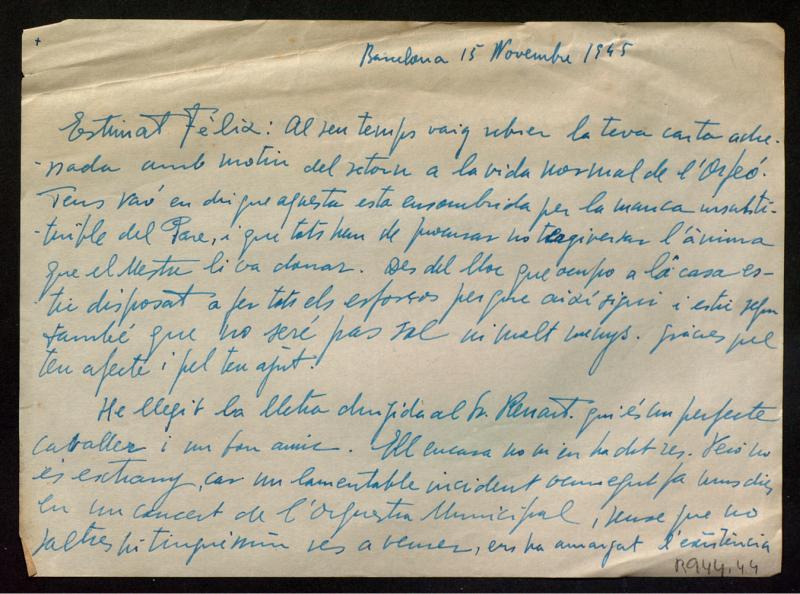 +
Barcelona 15 Novembre 1945
Estimat Fèlix: Al seu temps vaig rebrer la teva carta adre-
-sada amb motiu del retorn a la vida normal de l'Orfeó.
Tens raó en dir que aquesta esta ensombrida per la manca insubsti-
-tuible del Pare, i que tots hem de procurar no tergiversar l'ànima
que el Mestre li va donar. Des del lloc que ocupo a la casa es-
tic disposat a fer tots els esforços perque aixi sigui i estic segur
també que no seré pas sol ni molt menys. Gràcies pel
teu afecte i pel teu ajut.
He llegit la lletra dirigida al Sr. Renart. qui és un perfecte
caballer i un bon amic. Ell encara no m'en ha dit res. Però no
és estrany, car un lamentable incident ocorregut fa uns dies
en un concert de l'Orquestra Municipal, sense que no
saltres hi tinguéssim res a veurer, ens ha amargat l'existència
R.944.44